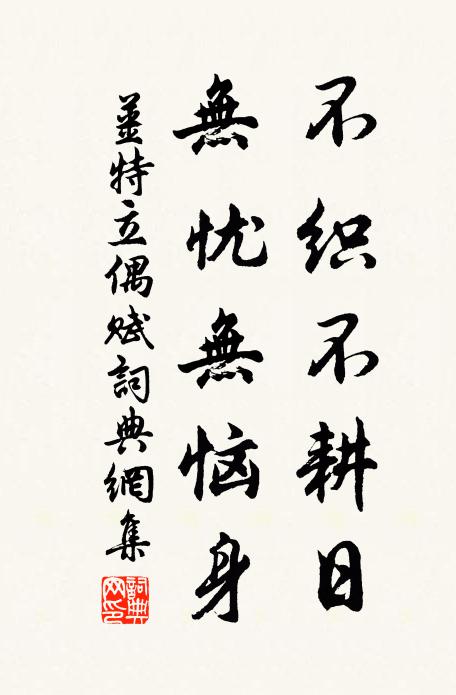 不织不耕日
無忧無恼身
薑特立偶赋詞典網集
詞典